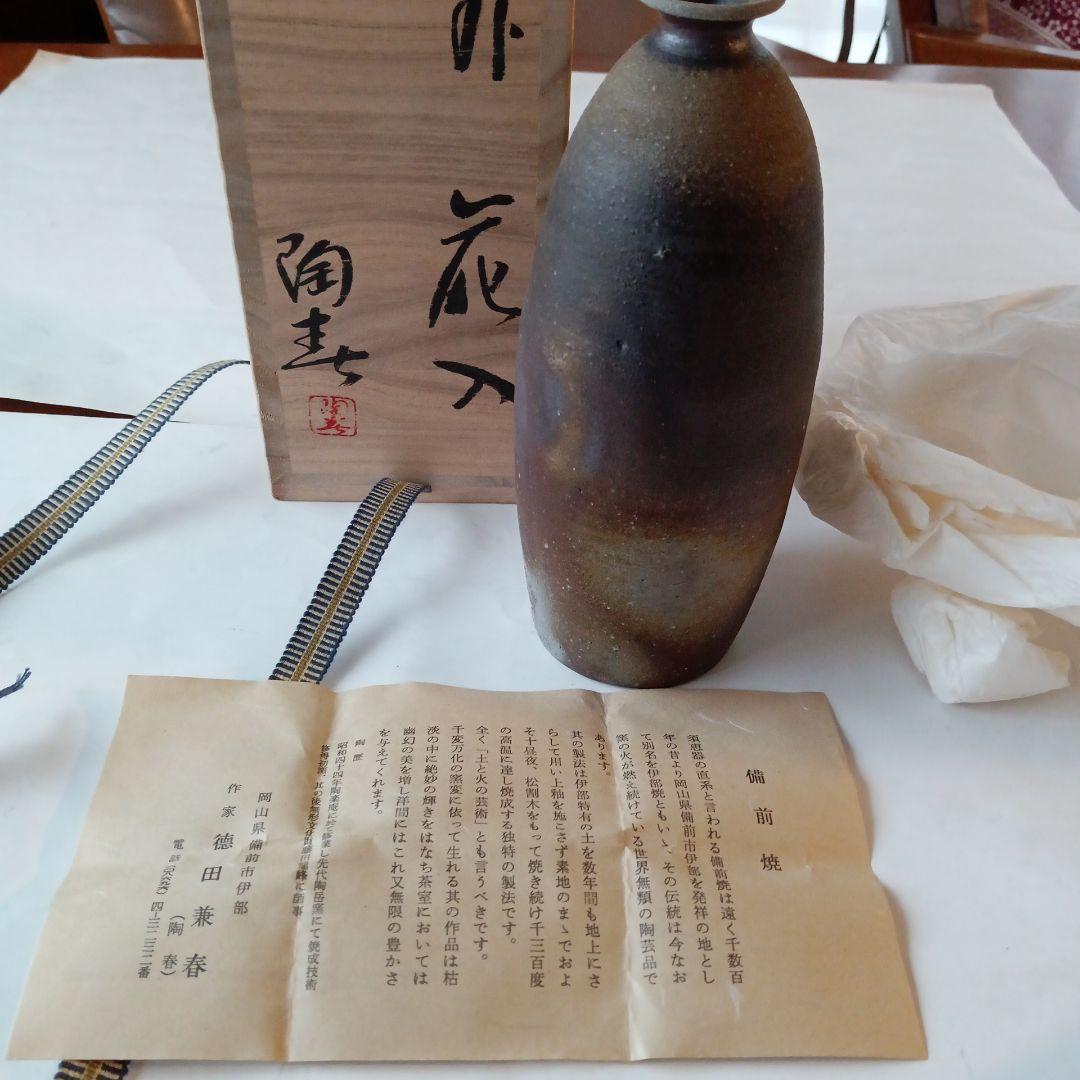 花入
陶春
陶春
備前焼
須恵器の直系と言われる備前焼は遠く千数百
年の昔より岡山県備前市伊部を発祥の地とし
て別名を伊部焼ともいゝ、その伝統は今なお
窯の火が燃え続けている世界無類の陶芸品で
あります。
其の製法は伊部特有の土を数年間も地上にさ
らして用い上釉を施こさず素地のまゝでおよ
そ十昼夜、松割木をもって焼き続け千三百度
の高温に達し焼成する独特の製法です。
全く「土と火の芸術」とも言うべきです。
千変万化の窯変に依って生れる其の作品は枯
淡の中に絶妙の輝きをはなち茶室においては
幽幻の美を増し洋間にはこれ又無限の豊かさ
を与えてくれます。
陶歴
昭和四十四年陶楽庵に於て修業し先代陶岳窯にて焼成技術
其の後無形文化財
に師事
岡山県備前市伊部
作家 德田兼春
(陶春)
電話
番